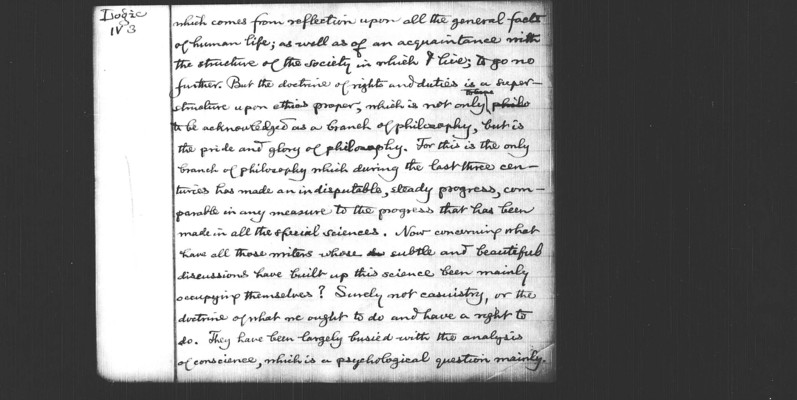 Logic
IV 3
which comes from reflection upon all the general facts
of human life; as well as of an acquaintance with
the structure of the society in which I live; to go no
further. But the doctrine of rights and duties is a super-
structure upon ethics proper, which is not only philo
to be acknowledged as a branch of philosophy, but is
the pride and glory of philosophy. For this is the only
branch of philosophy which during the last three cen-
turies has made an indisputable, steady progress, com-
parable in any measure to the progress that has been
made in all the special sciences. Now concerning what
have all those writers whose subtle and beautiful
discussions have built up this science been mainly
occupying themselves? Surely not casuistry, or the
doctrine of what we ought to do and have a right to
do. They have been largely busied with the analysis
of conscience, which is a psychological question mainly.